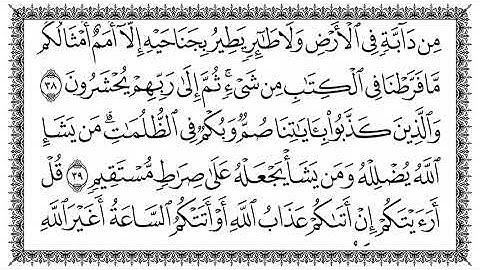 مِن دَآبَّةٍ فِى ٱلْأَرْضِ وَلَا طَـٰٓئِرٍ يَطِيرُ بِجَنَاحَيْهِ إِلَّآ أُمَمٌ أَمْثَالُكُم
مَّا فَرَّطْنَا فِى ٱلْكِتَـٰبِ مِن شَىْءٍ ۚ ثُمَّ إِلَىٰ رَبِّهِمْ يُحْشَرُونَ ٣٨
وَٱلَّذِينَ كَذَّبُوا۟ بِـَٔايَـٰتِنَا صُمٌّ وَبُكْمٌ فِى ٱلظُّلُمَـٰتِ ۗ مَن يَشَإِ
ٱللَّهُ يُضْلِلْهُ وَمَن يَشَأْ يَجْعَلْهُ عَلَىٰ صِرَٰطٍ مُّسْتَقِيمٍ ٣٩ قُلْ
أَرَءَيْتَكُمْ إِنْ أَتَىٰكُمْ عَذَابُ ٱللَّهِ أَوْ أَتَتْكُمُ ٱلسَّاعَةُ أَغَيْرَ ٱللَّهِ